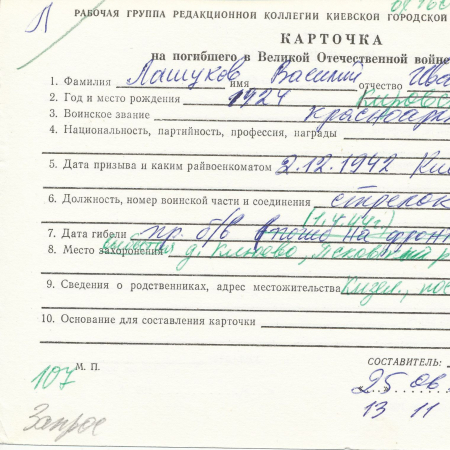 Л
РАБОЧАЯ ГРУППА РЕДАКЦИОННОЙ КОЛЛЕГИИ КИЕВСКОЙ ГОРОДСКОЙ
КАРТОЧКА
на погибшего в Великой Отечественной войне
1. Фамилия Лашуков имя Василий отчество Ива
2. Год и место рождения 1924 Кировс
3. Воинское звание красноарм
4. Национальность, партийность, профессия, награды
5. Дата призыва и каким райвоенкоматом 2.12.1942 Ки
6. Должность, номер воинской части и соединения стрелок
(1.4.44г.)
7. Дата гибели пр. б/в на фрон
8. Место захоронения д.
9. Сведения о родственниках, адрес местожительства Кизел., пос
10. Основание для составления карточки
М. П.
СОСТАВИТЕЛЬ:
107
25 ов
13 11
Запрос